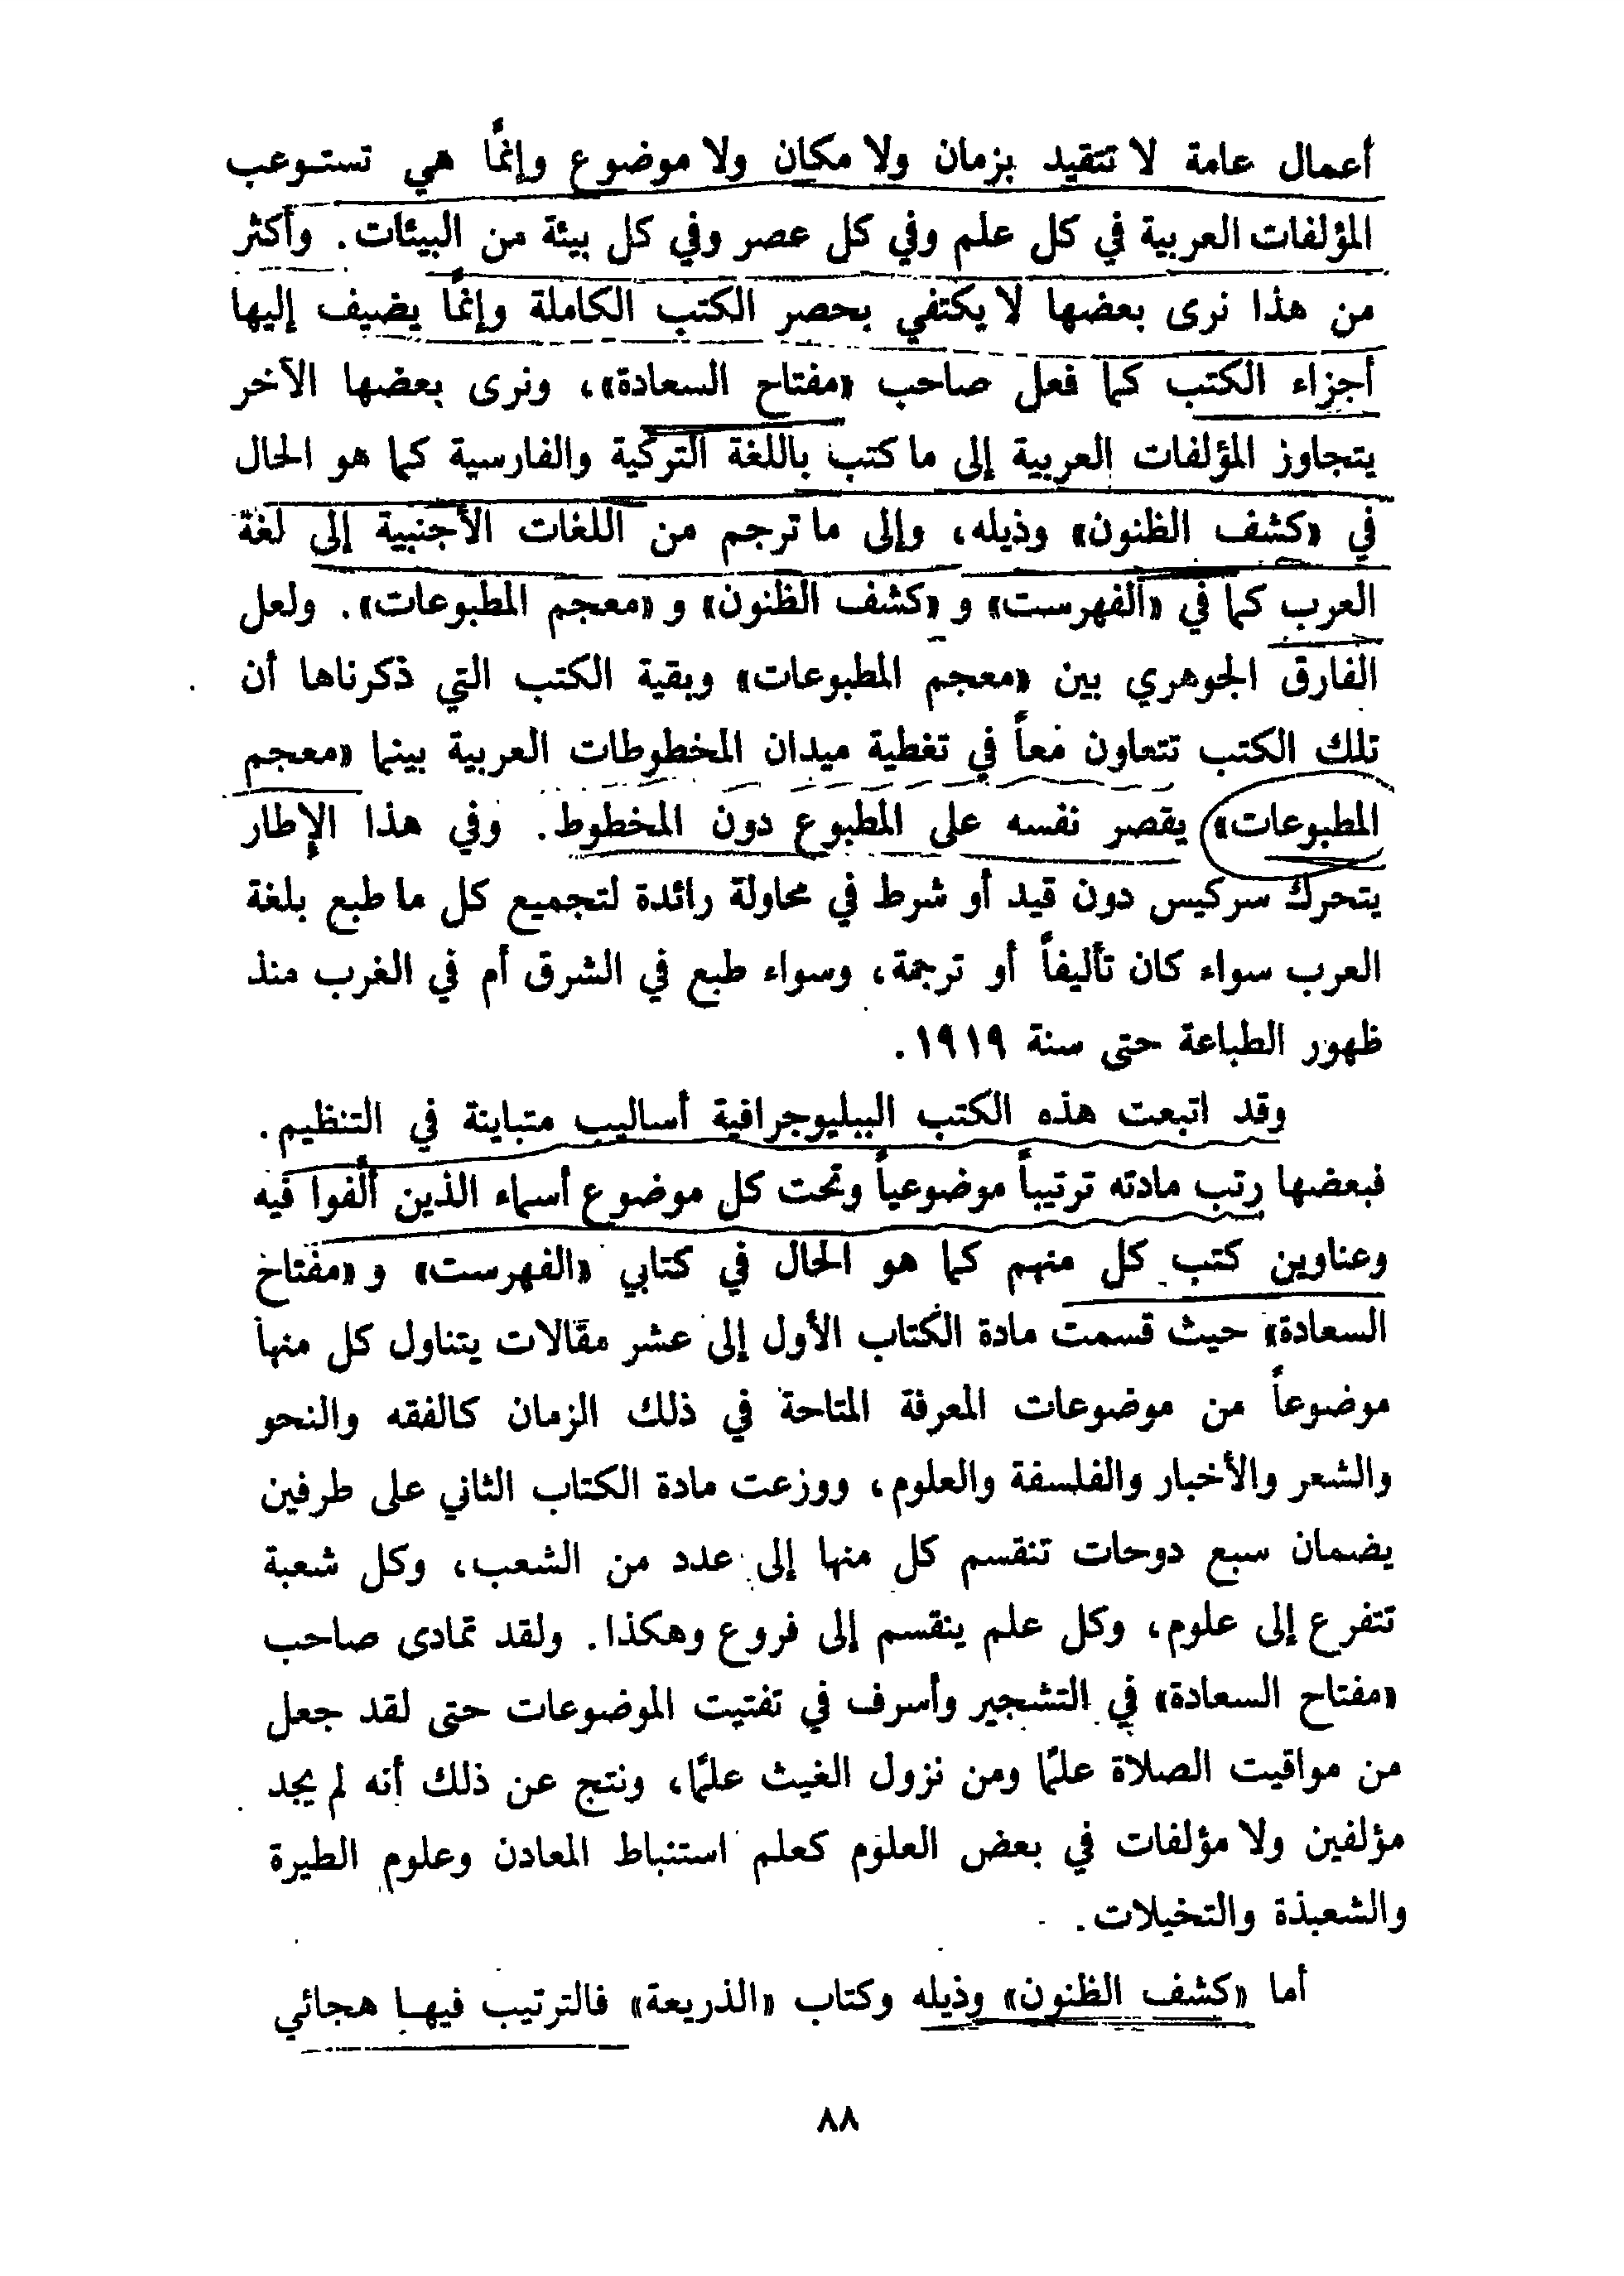 أعمال عامة لا تتقيد بزمان ولا مكان ولا موضوع وإنمًا هي تستوعب
المؤلفات العربية في كل علم وفي كل عصر وفي كل بيئة من البيئات. وأكثر
من هذا نرى بعضها لا يكتفي بحصر الكتب الكاملة وإنمًا يضيف إليها
أجزاء الكتب كما فعل صاحب «مفتاح السعادة»، ونرى بعضها الآخر
يتجاوز المؤلفات العربية إلى ما كتب باللغة التركية والفارسية كما هو الحال
في «كشف الظنون» وذيله، وإلى ما ترجم من اللغات الأجنبية إلى لغة
العرب كما في «الفهرست» و «كشف الظنون» و «معجم المطبوعات». ولعل
الفارق الجوهري بين «معجم المطبوعات» وبقية الكتب التي ذكرناها أن
تلك الكتب تتعاون معاً في تغطية ميدان المخطوطات العربية بينما «معجم
المطبوعات» يقصر نفسه على المطبوع دون المخطوط. وفي هذا الإطار
يتحرك سركيس دون قيد أو شرط في محاولة رائدة لتجميع كل ما طبع بلغة
العرب سواء كان تأليفاً أو ترجمة، وسواء طبع في الشرق أم في الغرب منذ
ظهور الطباعة حتى سنة ١٩١٩.
وقد اتبعت هذه الكتب الببليوجرافية أساليب متباينة في التنظيم.
فبعضها رتب مادته ترتيباً موضوعياً وتحت كل موضوع أسماء الذين ألفوا فيه
وعناوين كتب كل منهم كما هو الحال في كتابي «الفهرست» و «مفتاح
السعادة» حيث قسمت مادة الكتاب الأول إلى عشر مقالات يتناول كل منها
موضوعاً من موضوعات المعرفة المتاحة في ذلك الزمان كالفقه والنحو
والشعر والأخبار والفلسفة والعلوم، ووزعت مادة الكتاب الثاني على طرفين
يضمان سبع دوحات تنقسم كل منها إلى عدد من الشعب، وكل شعبة
تتفرع إلى علوم، وكل علم ينقسم إلى فروع وهكذا. ولقد تمادى صاحب
«مفتاح السعادة» في التشجير وأسرف في تفتيت الموضوعات حتى لقد جعل
من مواقيت الصلاة علمًا ومن نزول الغيث علمًا، ونتج عن ذلك أنه لم يجد
مؤلفين ولا مؤلفات في بعض العلوم كعلم استنباط المعادن وعلوم الطيرة
والشعبذة والتخيلات.
أما «كشف الظنون» وذيله وكتاب «الذريعة» فالترتيب فيها هجائي
٨٨